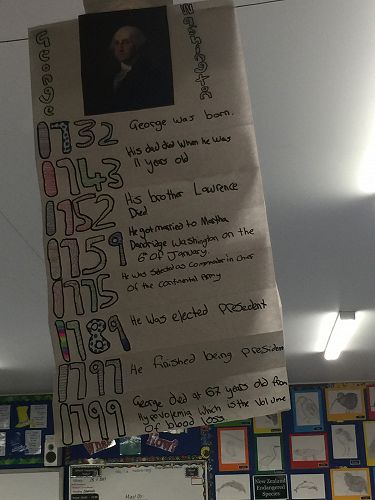 George
Washington
1732
George was born.
1743
His dad died when he was
11 years old
1752
His brother Lawrence
Died
1759
He got married to Martha
Dandridge Washington on the
6 of January
1775
He was selected as Commander in Chief
of the Continental Army
1789
He was elected president
1797
He finished being president
1799
George died at 67 years old from
Hypovolemia which is the volume
of blood loss
New Zealand
Endangered
Species